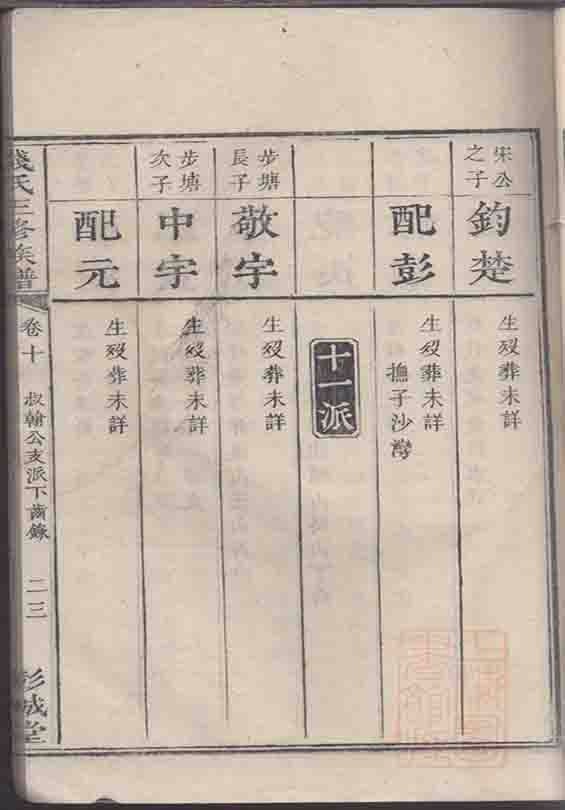 宋公之子
釣楚
生歿葬未詳
配彭
生歿葬未詳
撫子沙灣
十一派
步塘長子
敬宇
生歿葬未詳
步塘次子
中宇
生歿葬未詳
配元
生歿葬未詳
錢氏三修族譜
卷十
叔翰公支派下齒錄
二三
彭城堂